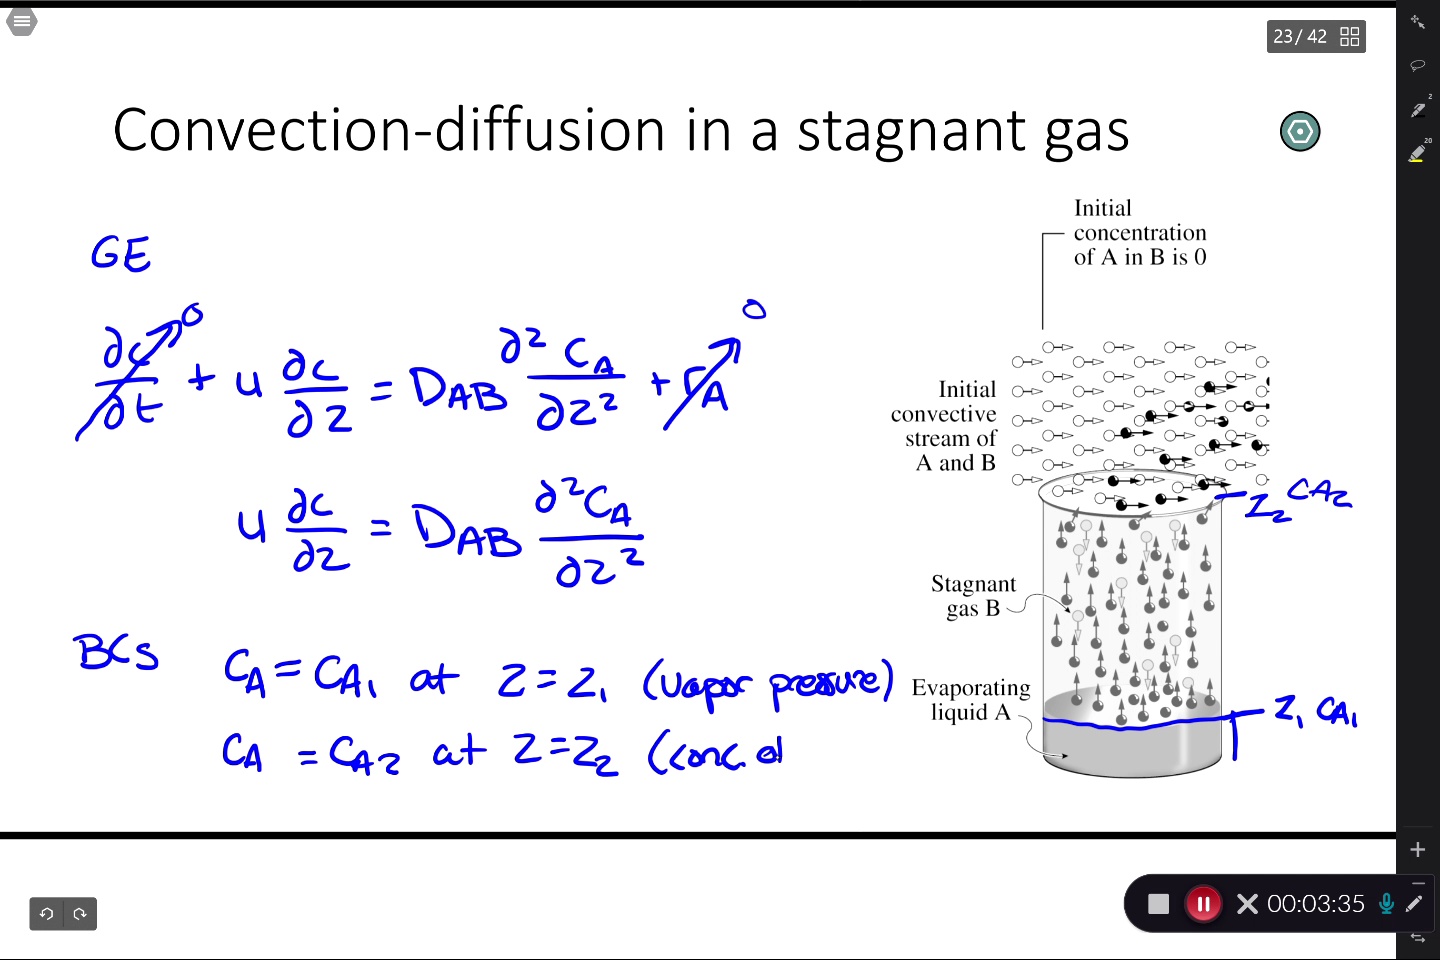 23 / 42
Convection-diffusion in a stagnant gas
2
20
GE
∂c/∂t → 0 + u ∂c/∂z = D_AB ∂²C_A/∂z² + r_A → 0
u ∂c/∂z = D_AB ∂²C_A/∂z²
BCs
C_A = C_A1 at z = z1 (vapor pressure)
C_A = C_A2 at z = z2 (conc.
Initial
concentration
of A in B is 0
Initial
convective
stream of
A and B
z2 C_A2
Stagnant
gas B
Evaporating
liquid A
z1 C_A1
00:03:35